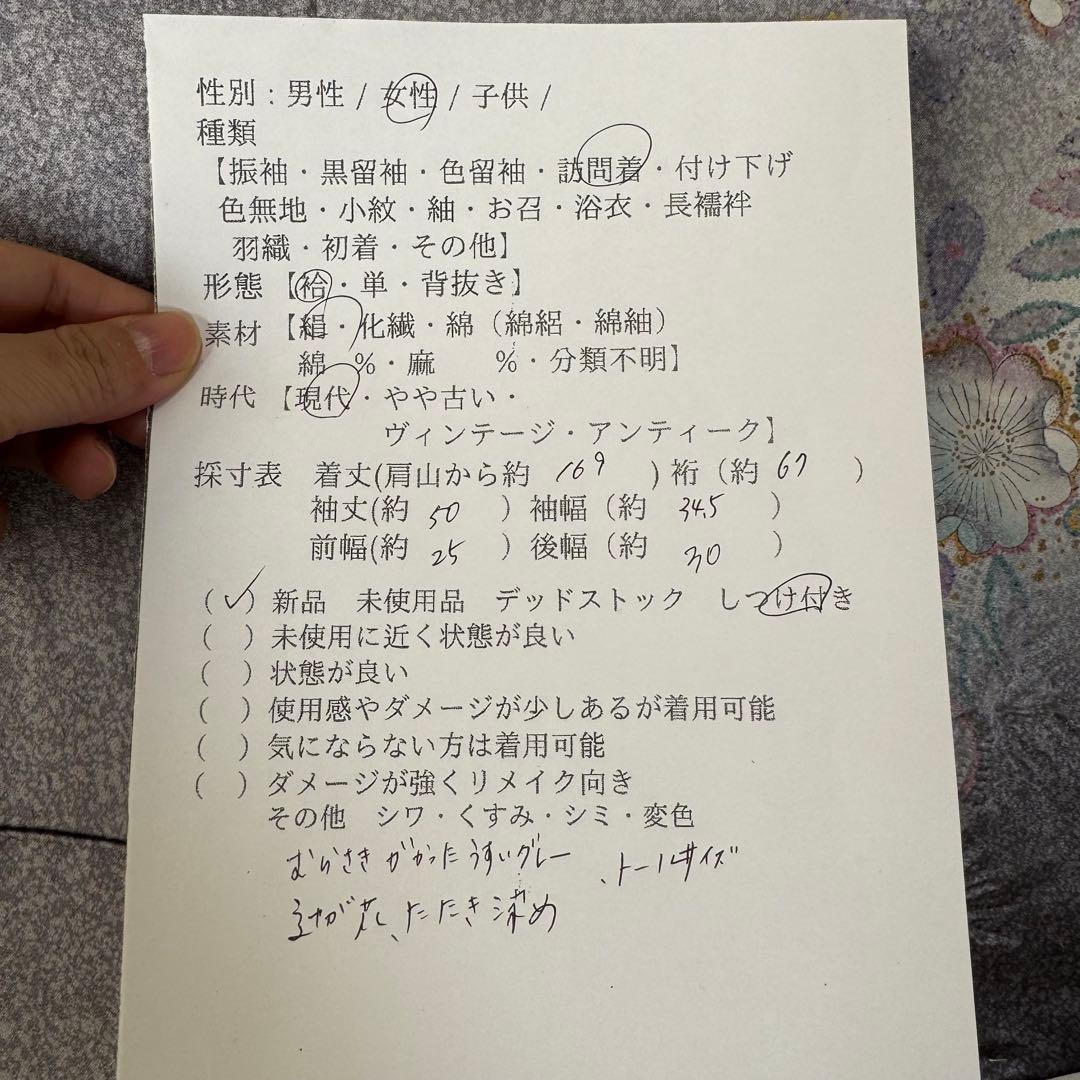 性別：男性 / 女性 / 子供 /
種類
【振袖・黒留袖・色留袖・訪問着・付け下げ
色無地・小紋・紬・お召・浴衣・長襦袢
羽織・初着・その他】
形態【袷・単・背抜き】
素材【絹・化繊・綿（綿絽・綿紬）
綿　%・麻　　%・分類不明】
時代【現代・やや古い・
ヴィンテージ・アンティーク】
採寸表　着丈(肩山から約 169 ) 裄（約 67 ）
袖丈(約 50 ）袖幅（約 34.5 ）
前幅(約 25 ）後幅（約 30 ）
(✓) 新品　未使用品　デッドストック　しつけ付き
(　) 未使用に近く状態が良い
(　) 状態が良い
(　) 使用感やダメージが少しあるが着用可能
(　) 気にならない方は着用可能
(　) ダメージが強くリメイク向き
その他　シワ・くすみ・シミ・変色
むらさきがかったうすいグレー 、トールサイズ
たたき染め